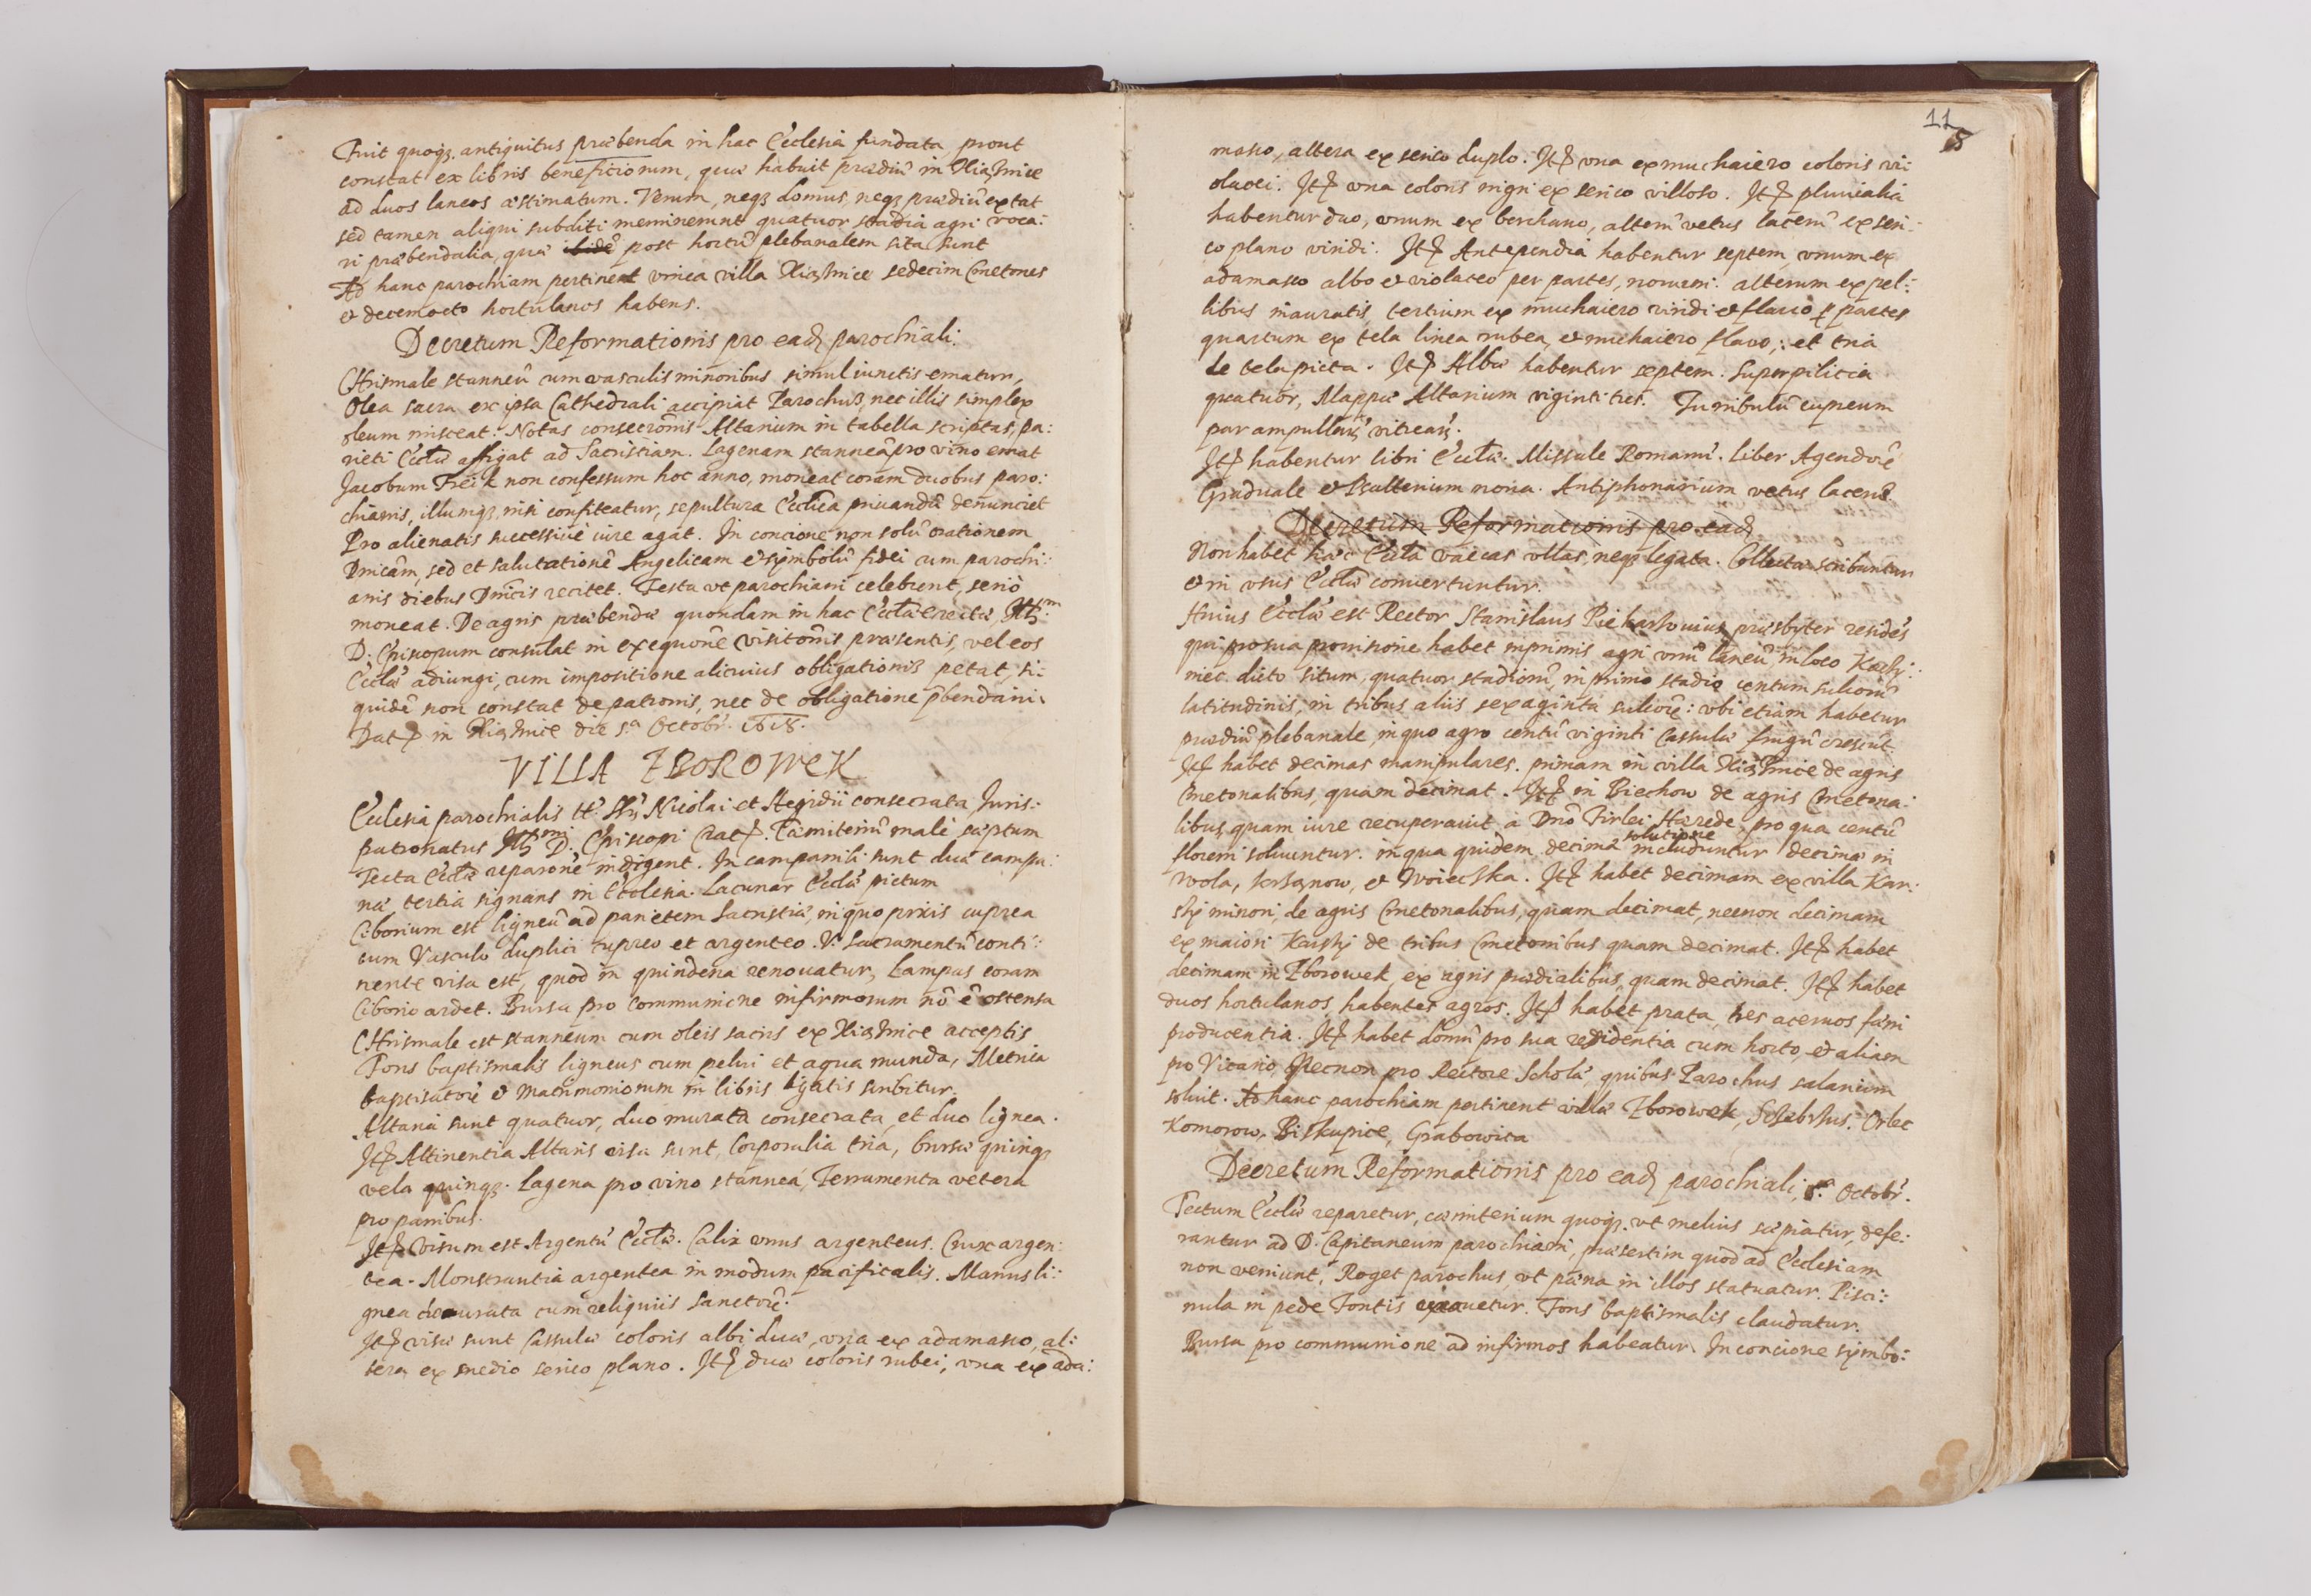 Fuit quoqз. antiquitus præbenda in hac Ecclesia fundata, prout
constat ex libris beneficiorum, quæ habuit prædiũ in Xiąznice
ad duos laneos æstimatum. Verum, neqз domus, neqз prædiũ extat
sed tamen aliqui subditi meminerunt quatuor stadia agri voca:
ri præbendalia, quæ ibidẽ post hortũ plebanalem sita sunt
Ad hanc parochiam pertinent vnica villa Xiąznice sedecim Cmetones
et decemocto hortulanos habens.
Decretum Reformationis pro eadַ parochiali.
Chrismale stanneũ cum vasculis minoribus simul iunctis ematur,
Olea sacra ex ipsa Cathedrali accipiat Parochus, nec illis simplex
oleum misceat. Notas consecrõnis Altarium in tabella scriptas, pa:
rieti Eccłæ affigat ad Sacristiam. Lagenam stanneã pro vino emat
Jacobum Treik non confessum hoc anno, moneat coram duobus paro:
chianis, illumqз nisi confiteatur, sepultura Ecclica priuandũ denunciet
Pro alienatis successiuè iure agat. In concione non solũ orationem
Dnicãm, sed et salutationẽ Angelicam et symbolũ fidei cum parochi:
anis diebus Dnicis recitet. Festa vt parochiani celebrent, seriò
moneat. De agris præbendæ quondam in hac Eccłæ erectæ, Illm
D. Episcopum consulat in exequõne visitõnis præsentis, vel eos
Eccłæ adiungi, cum impositione alicuius obligationis petat, si:
quidẽ non constat de patronis, nec de obligatione p̃bendarii.
Dat in Xiąznice die 5a Octobr. 1618.
VILLA ZBOROWEK
Ecclesia parochialis tt. SS. Nicolai et Aegidii consecrata, Juris:
patronatus Illmi D. Episcopi Crac. Cæmiteriũ malè sæptum
Tecta Eccłæ reparõne indigent. In campanili sunt duæ campa:
næ tertia signans in Ecclesia. Lacunar Eccłæ pictum
Ciborium est ligneũ ad parietem Sacristiæ, in quo prixis cuprea
cum Vasculo duplici cupreo et argenteo Vi. Sacramentũ conti:
nente visa est, quod in quindena renouatur, Lampas coram
Ciborio ardet. Bursa pro Communione infirmorum nõ ẽ ostensa
Chrismale est stanneum cum oleis sacris ex Xiąznice acceptis
Fons baptismalis ligneus cum pelui et aqua munda, Metrica
baptisatorũ et Matrimoniorum in libris ligatis scribitur.
Altaria sunt quatuor, duo murata consecrata, et duo lignea.
It Altinentia Altaris visa sunt, Corporalia tria, bursæ quinqз
vela quinqз. Lagena pro vino stannea, Ferramenta vetera
pro panibus.
It Visum est Argentũ Eccłæ. Calix vnus argenteus. Crux argen:
tea. Monstrantia argentea in modum pacificalis. Manus li:
gnea deaurata cum reliquiis Sanctorũ.
It visæ sunt Cassulæ coloris albi duæ, vna ex adamasco, al:
tera ex medio serico plano. It duæ coloris rubei, vna ex ada:
11
8
masco, altera ex serico duplo. It vna ex muchaiero coloris vi:
olacei. It vna coloris nigri ex serico villoso. It pluuialia
habentur duo, vnum ex berchano, alterũ vetus lacerũ ex seri:
co plano viridi. It Antependia habentur septem, vnum ex
adamasco albo et violaceo per partes, nouum. alterum ex pel:
libus inauratis, tertium ex muchaiero viridi et flauo p partes
quartum ex tela linea rubea, et muchaiero flauo, et tria
de tela picta. It Albæ habentur septem. Superpilicia
quatuor, Mappæ Altarium viginti tres. Turibulũ cupreum
par ampullarũ vitrearũ.
It habentur libri Eccłæ. Missale Romanũ. Liber Agendorũ
Graduale et Psalterium noua. Antiphonarium vetus lacerũ.
Decretum Reformationis pro eadַ
Non habet hæc Eccła vaccas vllas, neqз legata. Collectæ scribuntur
et in vsus Eccłæ conuertuntur.
Huius Eccłæ est Rector Stanislaus Piekarsouius præsbyter residẽs
qui pro sua prouisione habet inprimis agri vnũ laneũ, in loco Karsy:
niec dicto situm, quatuor stadiorũ, in primo stadio centum sulcorũ
latitudinis, in tribus aliis sexaginta sulcorũ: vbi etiam habetur
prædiũ plebanale, in quo agro centũ viginti Cassulæ frugũ crescũt.
It habet decimas manipulares. primam in villa Xiąznice de agris
Cmetonalibus, quam decimat. It in Biechow de agris Cmetona:
libus, quam iure recuperauit à Dnõ Firlei Hærede, pro qua centũ
floreni soluuntur. in qua quidem decimæ solutione includuntur decimæ in
Wola, Serząnow, et Woiecska. It habet decimam ex villa Kar:
sy minori, de agris Cmetonalibus, quam decimat, necnon decimam
ex maiori Karsy de tribus Cmetonibus quam decimat. It habet
decimam in Zborowek, ex agris prædialibus, quam decimat. It habet
duos hortulanos, habentes agros. It habet prata, tres aceruos fæni
producentia. It habet domũ pro sua residentia cum horto, et aliam
pro Vicario, Necnon pro Rectore Scholæ, quibus Parochus salarium
soluit. Ad hanc parochiam pertinent villæ Zborowek, Orlec
Komorow, Biskupice, Grabowica
Decretum Reformationis pro eadַ parochiali, 5a Octobr.
Tectum Eccłæ reparetur, cæmiterium quoqз. vt melius sæpiatur, defe:
rantur ad D. Capitaneum parochiani, præsertim quod ad Ecclesiam
non veniunt, Roget parochus, vt pæna in illos statuatur. Pisci:
nula in pede Fontis excauetur. Fons baptismalis claudatur.
Bursa pro communione ad infirmos habeatur. In concione symbo: